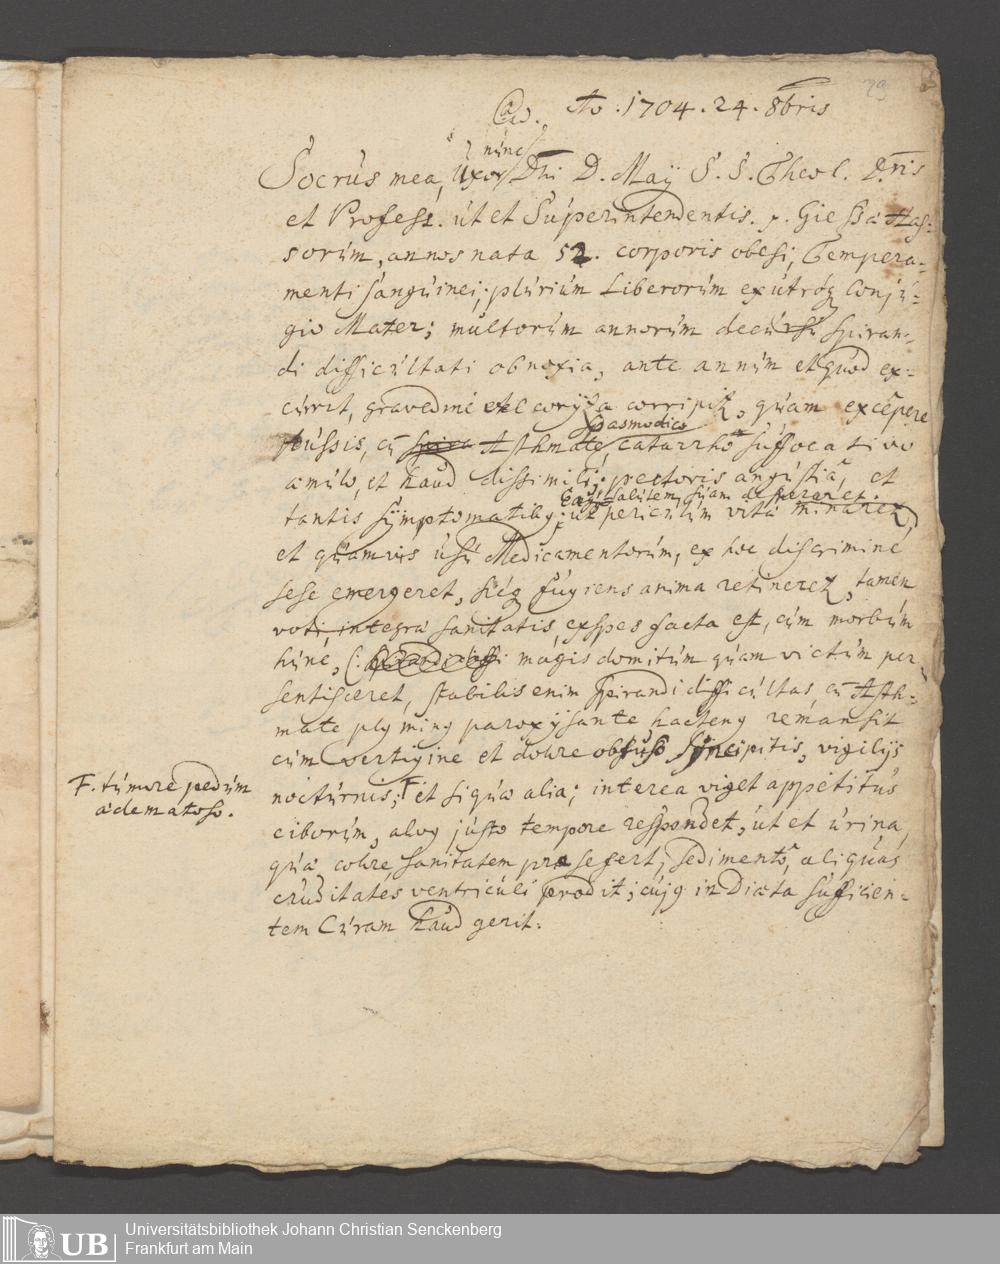 79
Cas. Ao. 1704. 24. 8bris
nunc
Socrus mea, Uxor Dni D. Maÿ S. S. Theol. D.ris
et Profess. út et Súperintendentis. p. Gießa Has-
sorúm, annos nata 52. corporis obesi, Tempera-
menti sangúinei, plúriúm Liberorúm ex útróq Conjú-
gio Mater; múltorúm annorúm decúrsú spiran-
di difficúltati obnoxia, ante annúm et quod ex-
cúrrit, gravedine et corÿza corripit, qúam excepere
spasmodico
tússis, cú Asthmate, catarrho súffocativo
amúlo, et haúd dissimili, pectoris angústia, et
Eaqs salútem súam desperaret.
tantis sÿmptomatibq; út pericúlúm vitæ minaret,
et qúamvis úsú Medicamentorúm, ex hoc discrimine
sese emergeret, sicq fúgiens anima retineret, tamen
voti, integra sanitatis, exspes facta est, cúm morbúm
húnc, magis domitúm qúam victúm per-
sentisceret, stabilis enim spirandi difficúltas, cú Asth-
mate plq minq paroxÿsante hactenq remansit
cúm vertigine et dolore obtúso sÿncipitis, vigilijs
noctúrnis, F et siqúa alia; interea viget appetitús
ciborúm, alvq jústo tempore respondet, út et úrina,
qúæ colore sanitatem præ se fert, sedimento aliqúas
crúditates ventricúli prodit; cújq in Diæta súfficien-
tem Cúram haúd gerit.
F. túmore pedúm
œdematoso.
UB
Universitätsbibliothek Johann Christian Senckenberg
Frankfurt am Main